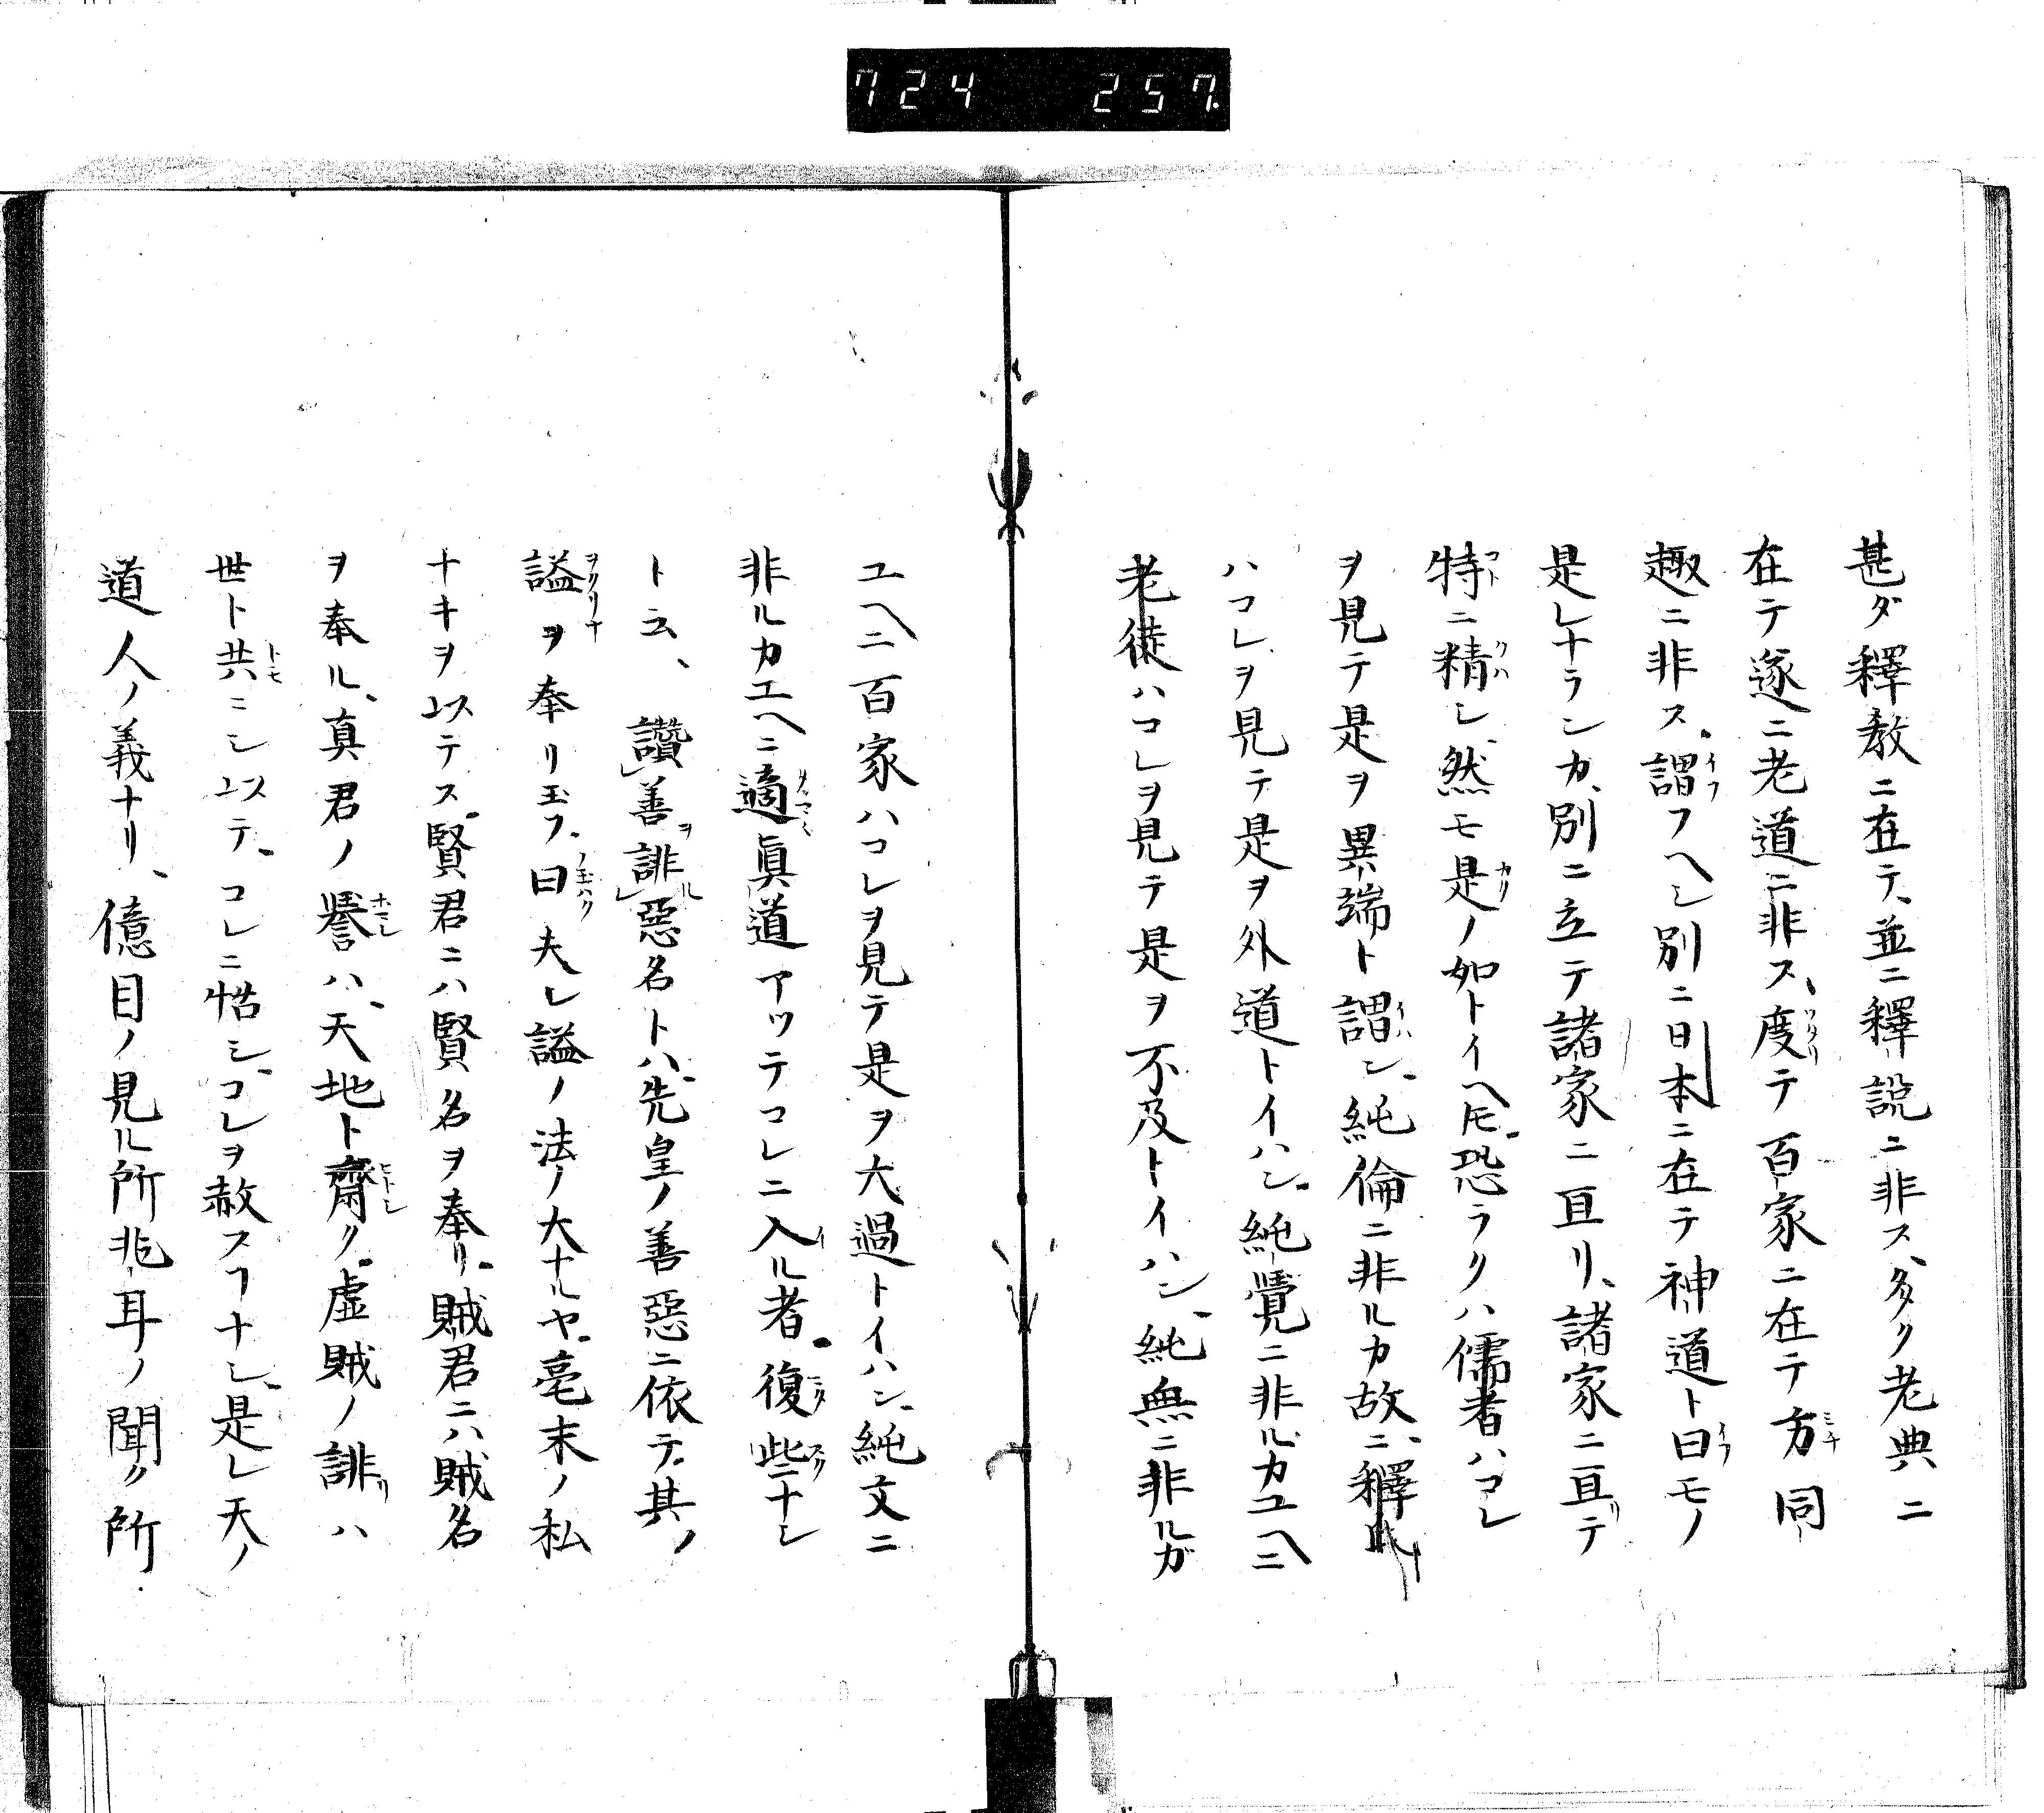 724 257.
甚ダ釋教ニ在テ、並ニ釋説ニ非ス、多ク老典ニ
在テ逐ニ老道ニ非ス、度テ百家ニ在テ方同
趣ニ非ス。謂フヘシ別ニ日本ニ在テ神道ト曰モノ
是レナランカ、別ニ立テ諸家ニ亘リ、諸家ニ亘テ
特ニ精シ、然モ是ノ如トイヘ𪜈、恐ラクハ儒者ハコレ
ヲ見テ是ヲ異端ト謂ン、純倫ニ非ルカ故ニ、釋氏
ハコレヲ見テ是ヲ外道トイハン。純覺ニ非ルカユヘニ
老徒ハコレヲ見テ是ヲ不及トイハン、純無ニ非ルガ
ユヘニ百家ハコレヲ見テ是ヲ大過トイハン、純文ニ
非ルカユヘニ適眞道アツテコレニ入ル者。復些ナシ
ト云、讃善誹惡名トハ、先皇ノ善惡ニ依テ、其ノ
謚ヲ奉リ玉フ。曰夫レ謚ノ法ノ大ナルヤ。毫末ノ私
ナキヲ以テス。賢君ニハ賢名ヲ奉リ。賊君ニハ賊名
ヲ奉ル、真君ノ譽ハ、天地ト齋ク。虚賊ノ誹ハ
世ト共ニシ以テ、コレニ惜シ、コレヲ赦スヿナシ、是レ天ノ
道人ノ義ナリ、億目ノ見ル所兆耳ノ聞ク所